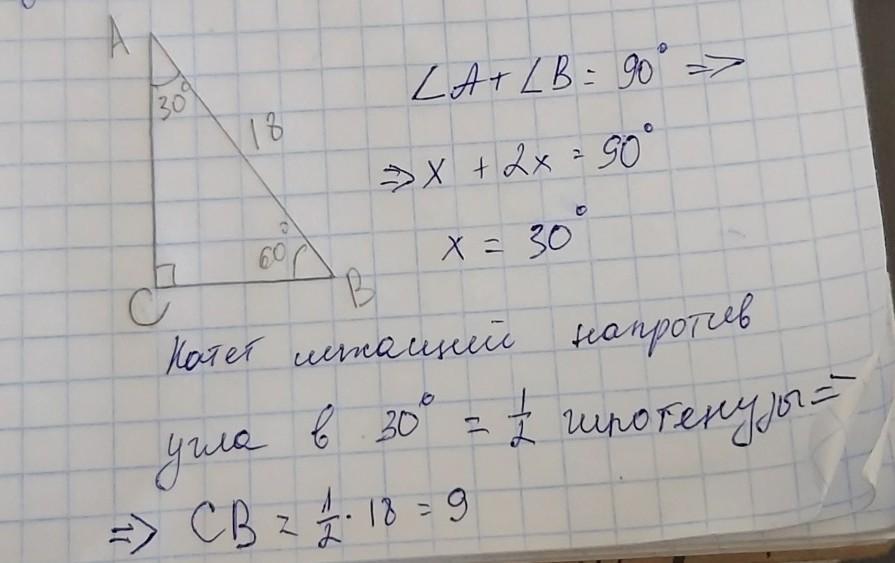 A
30°
18
60°
C
B
∠A + ∠B = 90° =>
=> x + 2x = 90°
x = 30°
Катет лежащий напротив
угла в 30° = 1/2 гипотенузы =>
=> CB = 1/2 · 18 = 9